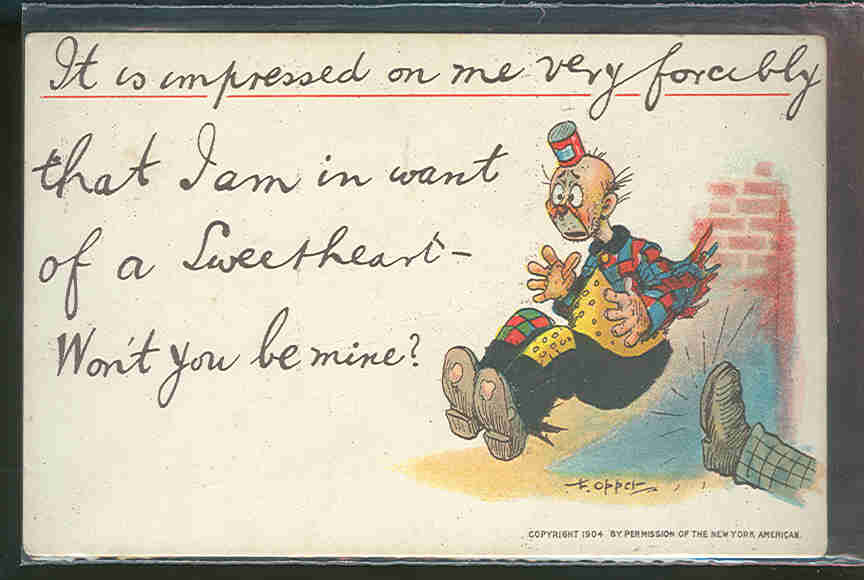 It is impressed on me very forcibly
that I am in want
of a Sweetheart-
Won't you be mine?
F. Opper
COPYRIGHT 1904 BY PERMISSION OF THE NEW YORK AMERICAN.